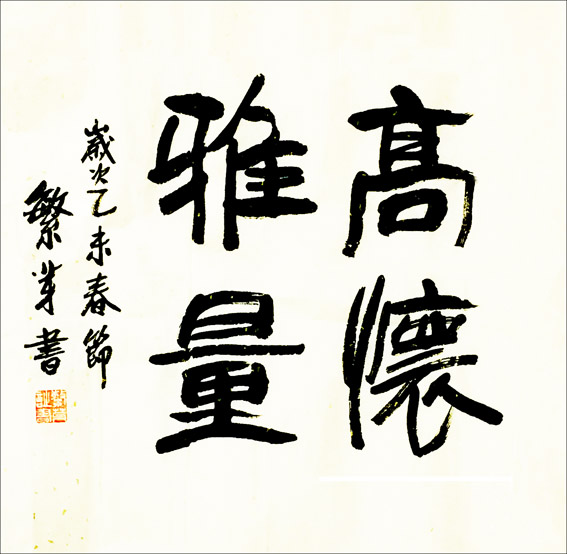 高懷
雅量
歲次乙未春節
繁茅書